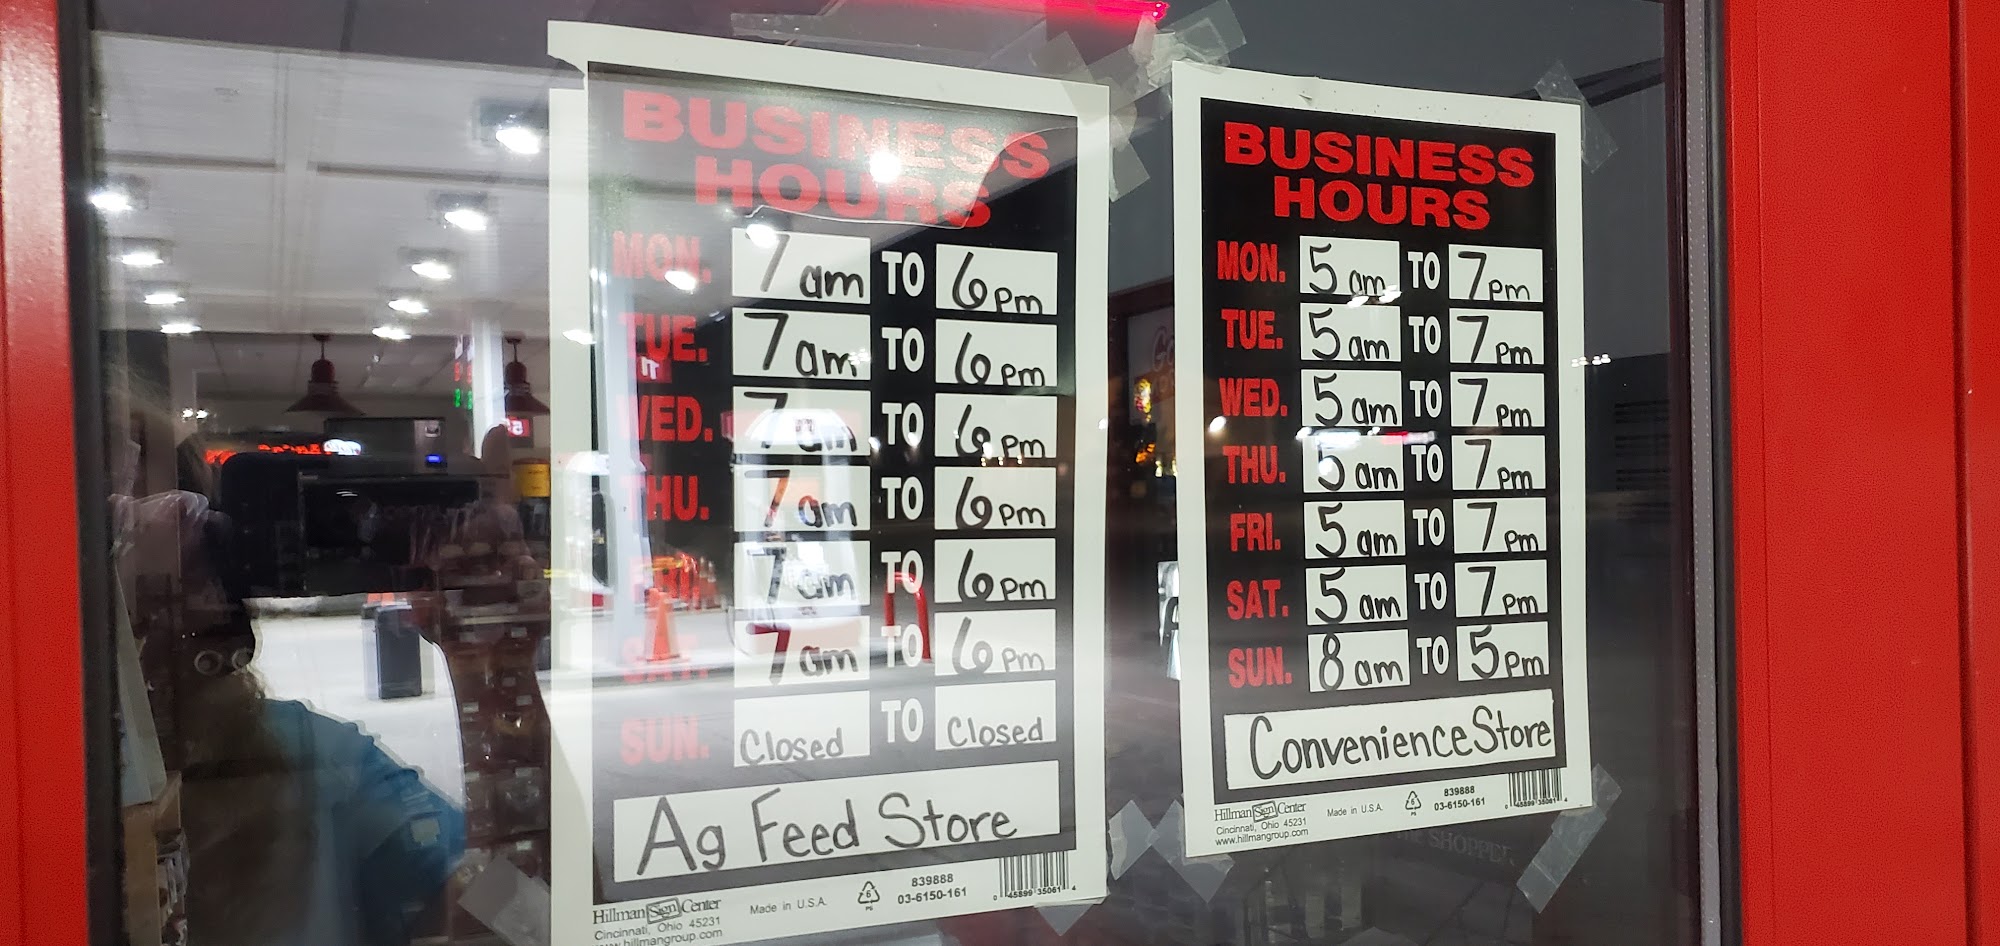 BUSINESS
HOURS
MON. 7 am TO 6 pm
TUE. 7 am TO 6 pm
WED. 7 am TO 6 pm
THU. 7 am TO 6 pm
FRI. 7 am TO 6 pm
SAT. 7 am TO 6 pm
SUN. Closed TO Closed
Ag Feed Store
Hillman Sign Center
Cincinnati, Ohio 45231
www.hillmangroup.com
Made in U.S.A.
6
PS
839888
03-6150-161
0 45899 35061 4
BUSINESS
HOURS
MON. 5 am TO 7 pm
TUE. 5 am TO 7 pm
WED. 5 am TO 7 pm
THU. 5 am TO 7 pm
FRI. 5 am TO 7 pm
SAT. 5 am TO 7 pm
SUN. 8 am TO 5 pm
Convenience Store
Hillman Sign Center
Cincinnati, Ohio 45231
www.hillmangroup.com
Made in U.S.A.
6
PS
839888
03-6150-161
0 45899 35061 4